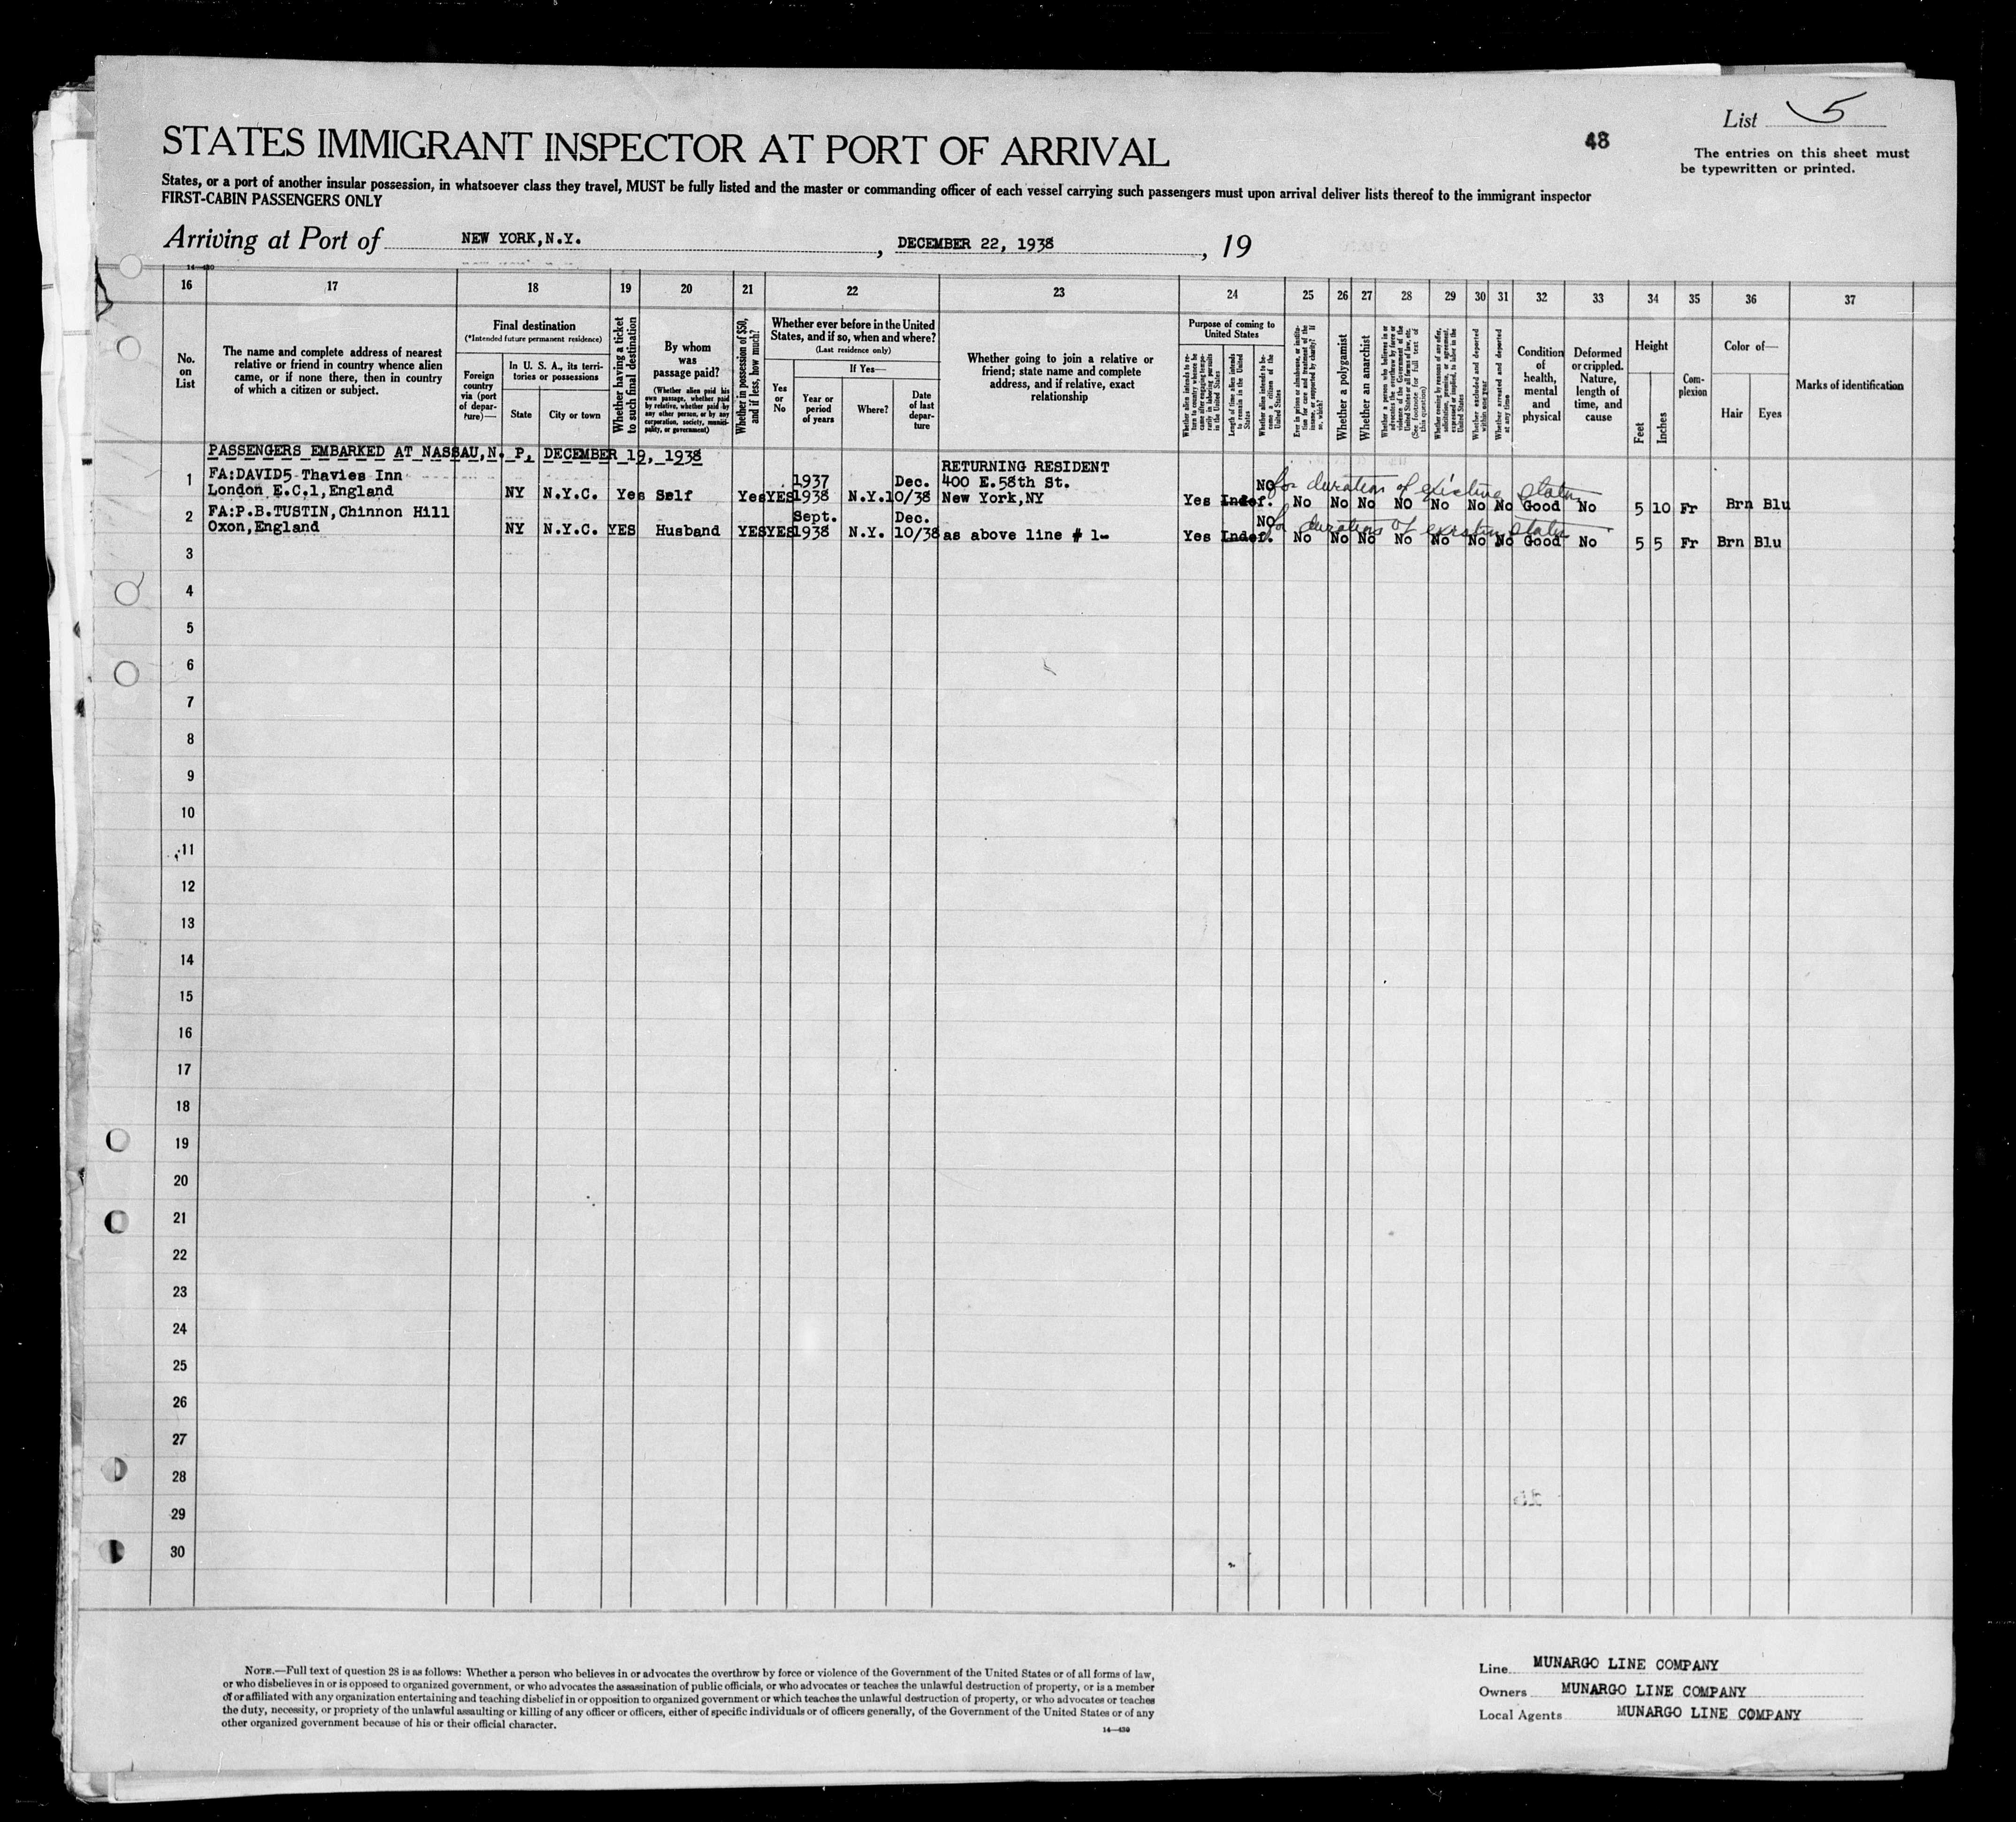 List 5
48
The entries on this sheet must
be typewritten or printed.
STATES IMMIGRANT INSPECTOR AT PORT OF ARRIVAL
States, or a port of another insular possession, in whatsoever class they travel, MUST be fully listed and the master or commanding officer of each vessel carrying such passengers must upon arrival deliver lists thereof to the immigrant inspector
FIRST-CABIN PASSENGERS ONLY
Arriving at Port of NEW YORK,N.Y. , DECEMBER 22, 1938 , 19
14—430
16 17 18 19 20 21 22 23 24 25 26 27 28 29 30 31 32 33 34 35 36 37
No.
on
List
The name and complete address of nearest
relative or friend in country whence alien
came, or if none there, then in country
of which a citizen or subject.
Final destination
(*Intended future permanent residence)
Foreign
country
via (port
of depar-
ture)—
In U. S. A., its terri-
tories or possessions
State
City or town
Whether having a ticket
to such final destination
By whom
was
passage paid?
(Whether alien paid his
own passage, whether paid
by relative, whether paid by
any other person, or by any
corporation, society, munici-
pality, or government)
Whether in possession of $50,
and if less, how much?
Whether ever before in the United
States, and if so, when and where?
(Last residence only)
Yes
or
No
If Yes—
Year or
period
of years
Where?
Date
of last
depar-
ture
Whether going to join a relative or
friend; state name and complete
address, and if relative, exact
relationship
Purpose of coming to
United States
Whether alien intends to re-
turn to country whence he
came after engaging tempo-
rarily in laboring pursuits
in the United States
Length of time alien intends
to remain in the United
States
Whether alien intends to be-
come a citizen of the
United States
Ever in prison or almshouse, or institu-
tion for care and treatment of the
insane, or supported by charity? If
so, which?
Whether a polygamist
Whether an anarchist
Whether a person who believes in or
advocates the overthrow by force or
violence of the Government of the
United States or all forms of law, etc.
(See footnote for full text of
this question)
Whether coming by reasons of any offer,
solicitation, promise, or agreement,
expressed or implied, to labor in the
United States
Whether excluded and deported
within one year
Whether arrested and deported
at any time
Condition
of
health,
mental
and
physical
Deformed
or crippled.
Nature,
length of
time, and
cause
Height
Feet
Inches
Com-
plexion
Color of—
Hair
Eyes
Marks of identification
PASSENGERS EMBARKED AT NASSAU,N. P, DECEMBER 19, 1938
1 FA:DAVID5 Thavies Inn 1937 Dec. RETURNING RESIDENT
400 E.58th St. NO for duration of existing status
London E.C.1,England NY N.Y.C. Yes Self Yes YES 1938 N.Y. 10/38 New York,NY Yes Indef. No No No NO No No No Good No 5 10 Fr Brn Blu
2 FA:P.B.TUSTIN,Chinnon Hill Sept. Dec. NO for duration of existing status
Oxon,England NY N.Y.C. YES Husband YES YES 1938 N.Y. 10/38 as above line # 1- Yes Indef. No No No No No No No Good No 5 5 Fr Brn Blu
3
4
5
6
7
8
9
10
11
12
13
14
15
16
17
18
19
20
21
22
23
24
25
26
27
28
29
30
NOTE.—Full text of question 28 is as follows: Whether a person who believes in or advocates the overthrow by force or violence of the Government of the United States or of all forms of law,
or who disbelieves in or is opposed to organized government, or who advocates the assassination of public officials, or who advocates or teaches the unlawful destruction of property, or is a member
of or affiliated with any organization entertaining and teaching disbelief in or opposition to organized government or which teaches the unlawful destruction of property, or who advocates or teaches
the duty, necessity, or propriety of the unlawful assaulting or killing of any officer or officers, either of specific individuals or of officers generally, of the Government of the United States or of any
other organized government because of his or their official character.
14—430
Line MUNARGO LINE COMPANY
Owners MUNARGO LINE COMPANY
Local Agents MUNARGO LINE COMPANY